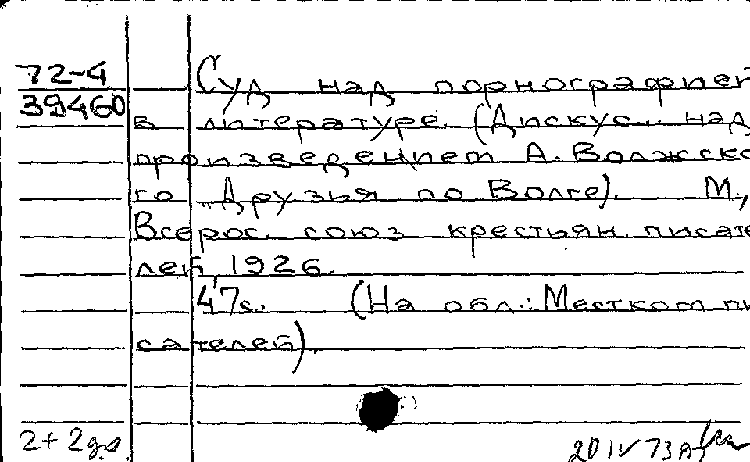 72-4
39460
Суд над порнографией
в литературе. (Дискус. над
произведением А. Волжско
го „Друзья по Волге). М.,
Всерос. союз крестьян. писате
лей, 1926.
47с. (На обл.: Местком пи
сателей).
2+2
20 IV 73